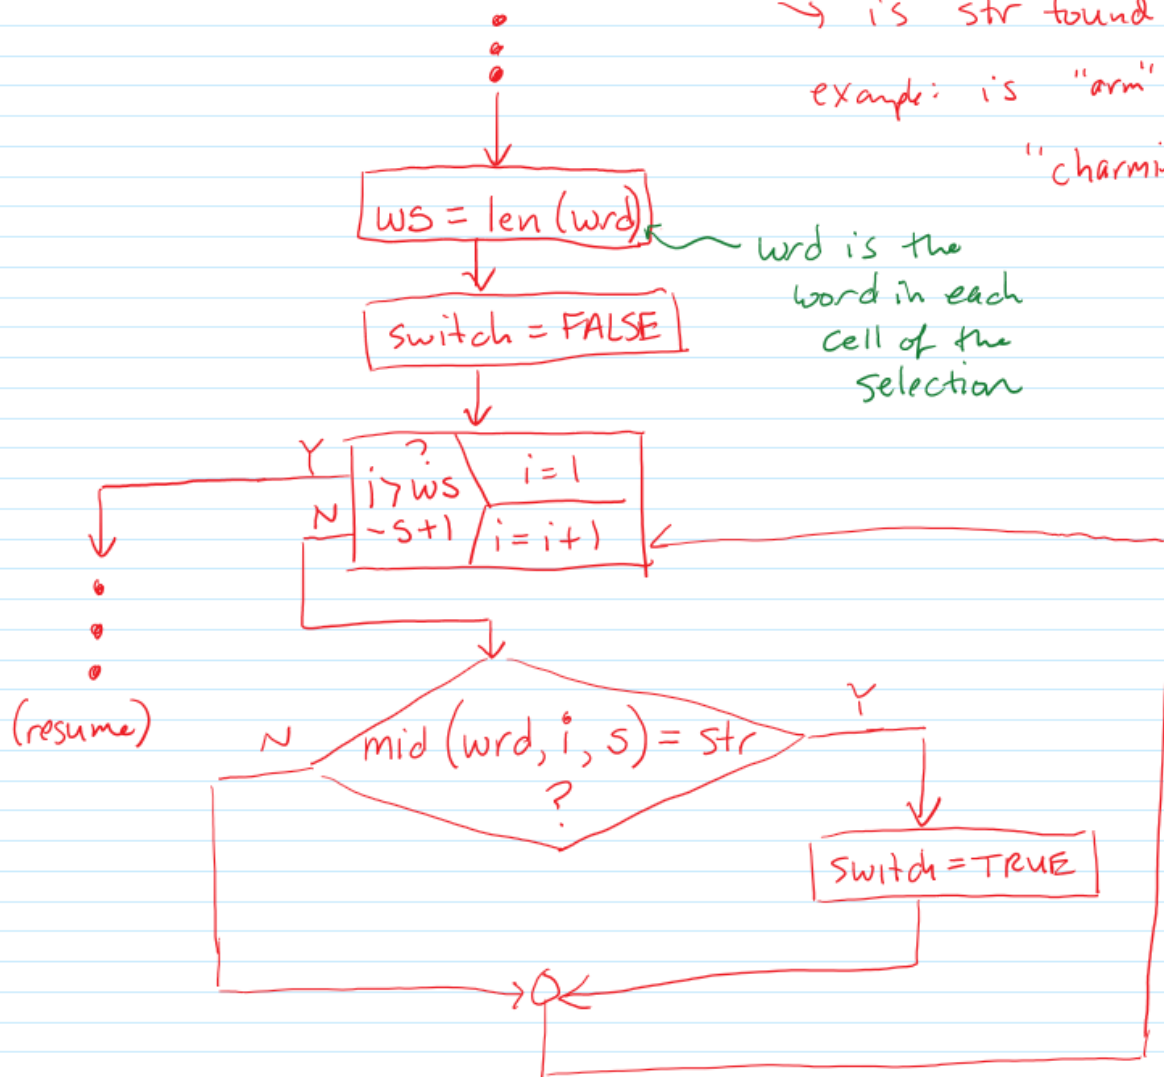 ↳ is str found
example: is "arm"
"charmi
ws = len (wrd)
wrd is the
word in each
cell of the
selection
switch = FALSE
Y
?
i>ws
-s+1
i=1
i=i+1
N
(resume)
N
mid (wrd, i, s) = str
?
Y
switch=TRUE